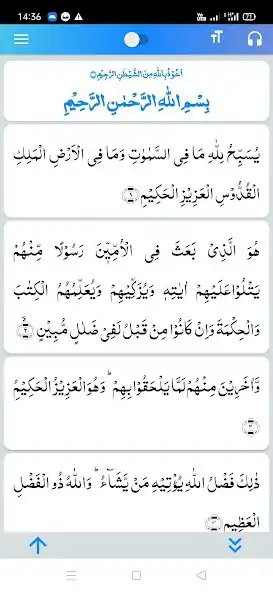 14:36
اَعُوْذُ بِاللّٰهِ مِنَ الشَّيْطٰنِ الرَّجِيْمِ
بِسْمِ اللّٰهِ الرَّحْمٰنِ الرَّحِيْمِ
يُسَبِّحُ لِلّٰهِ مَا فِى السَّمٰوٰتِ وَمَا فِى الْاَرْضِ الْمَلِكِ
الْقُدُّوْسِ الْعَزِيْزِ الْحَكِيْمِ ۝۱
هُوَ الَّذِىْ بَعَثَ فِى الْاُمِّيّٖنَ رَسُوْلًا مِّنْهُمْ
يَتْلُوْا عَلَيْهِمْ اٰيٰتِهٖ وَيُزَكِّيْهِمْ وَيُعَلِّمُهُمُ الْكِتٰبَ
وَالْحِكْمَةَ وَاِنْ كَانُوْا مِنْ قَبْلُ لَفِىْ ضَلٰلٍ مُّبِيْنٍ ۝۲
وَّاٰخَرِيْنَ مِنْهُمْ لَمَّا يَلْحَقُوْا بِهِمْ ؕ وَهُوَ الْعَزِيْزُ الْحَكِيْمُ
۝۳
ذٰلِكَ فَضْلُ اللّٰهِ يُؤْتِيْهِ مَنْ يَّشَآءُ ؕ وَاللّٰهُ ذُو الْفَضْلِ
الْعَظِيْمِ ۝۴